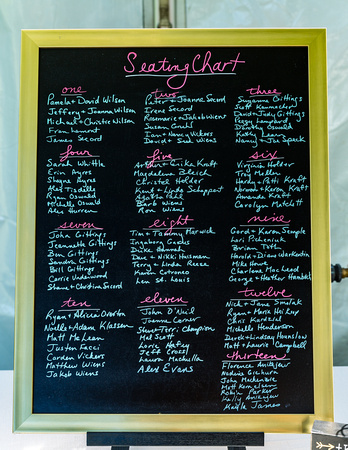 Seating Chart
one
Pamela + David Wilson
Jeffery + Joanna Wilson
Michael + Christie Wilson
Fran Lamont
James Secord
two
Peter + Joanne Secord
Irene Secord
Rosemarie + Jakob Wiens
Susan
Ian + Nancy Vickers
David + Sue Wiens
three
Suzanne Gittings
Scott Kannacher
David + Judy Gittings
Peggy Lampard
Dorothy Oswald
Kathy Learn
Nancy + Joe Speck
four
Sarah Whittle
Erin Ayres
Shayne Ayres
Alex Tisdelle
Ryan Oswald
Michelle Oswald
Alex
five
Arthur + Erika Kraft
Magdalena Bleich
Christel Holder
Kent + Linda Schappert
Agatha Fall
Barb Wiens
Ron Wiens
six
Virginia Holder
Troy Mellen
Hard + Patti Kraft
Norman + Karen Kraft
Amanda Kraft
Carolyn Matchett
seven
John Gittings
Jeannette Gittings
Ben Gittings
Sandra Gittings
Bill Gittings
Carrie Underwood
Shane + Christina Secord
eight
Tim + Tammy Marwick
Ingeborg Cordes
Dieke
Dave + Nikki Husman
Terry + Linda Reece
Karen Cotroneo
Len St. Louis
nine
Gord + Karen Semple
Lori Picheniuk
Doriem Toth
Harold + Diana Warkentin
Mike Howe
Charlene MacLeod
George + Heather Handel
ten
Ryan + Alicia Overton
Noelle + Adam Klassen
Matt McLean
Justen Facci
Carden Vickers
Matthew Wiens
Jakob Wiens
eleven
John O'Neil
Joanne Corner
Steve + Terri Champion
Mel Scott
Lorie Hatey
Jeff Crossl
Laura Machulla
Alex Evans
twelve
Nick + Jane Smolak
Ryan + Marie Heikoop
Chris Kardziel
Michelle Henderson
Derek + Lindsay Hounslow
Matt + Laurie Campbell
thirteen
Florence Anitejew
Nadine Gichurn
John Mackenzie
Matt Kernelsen
Robin Parker
Kelly Anitejew
Kayla James